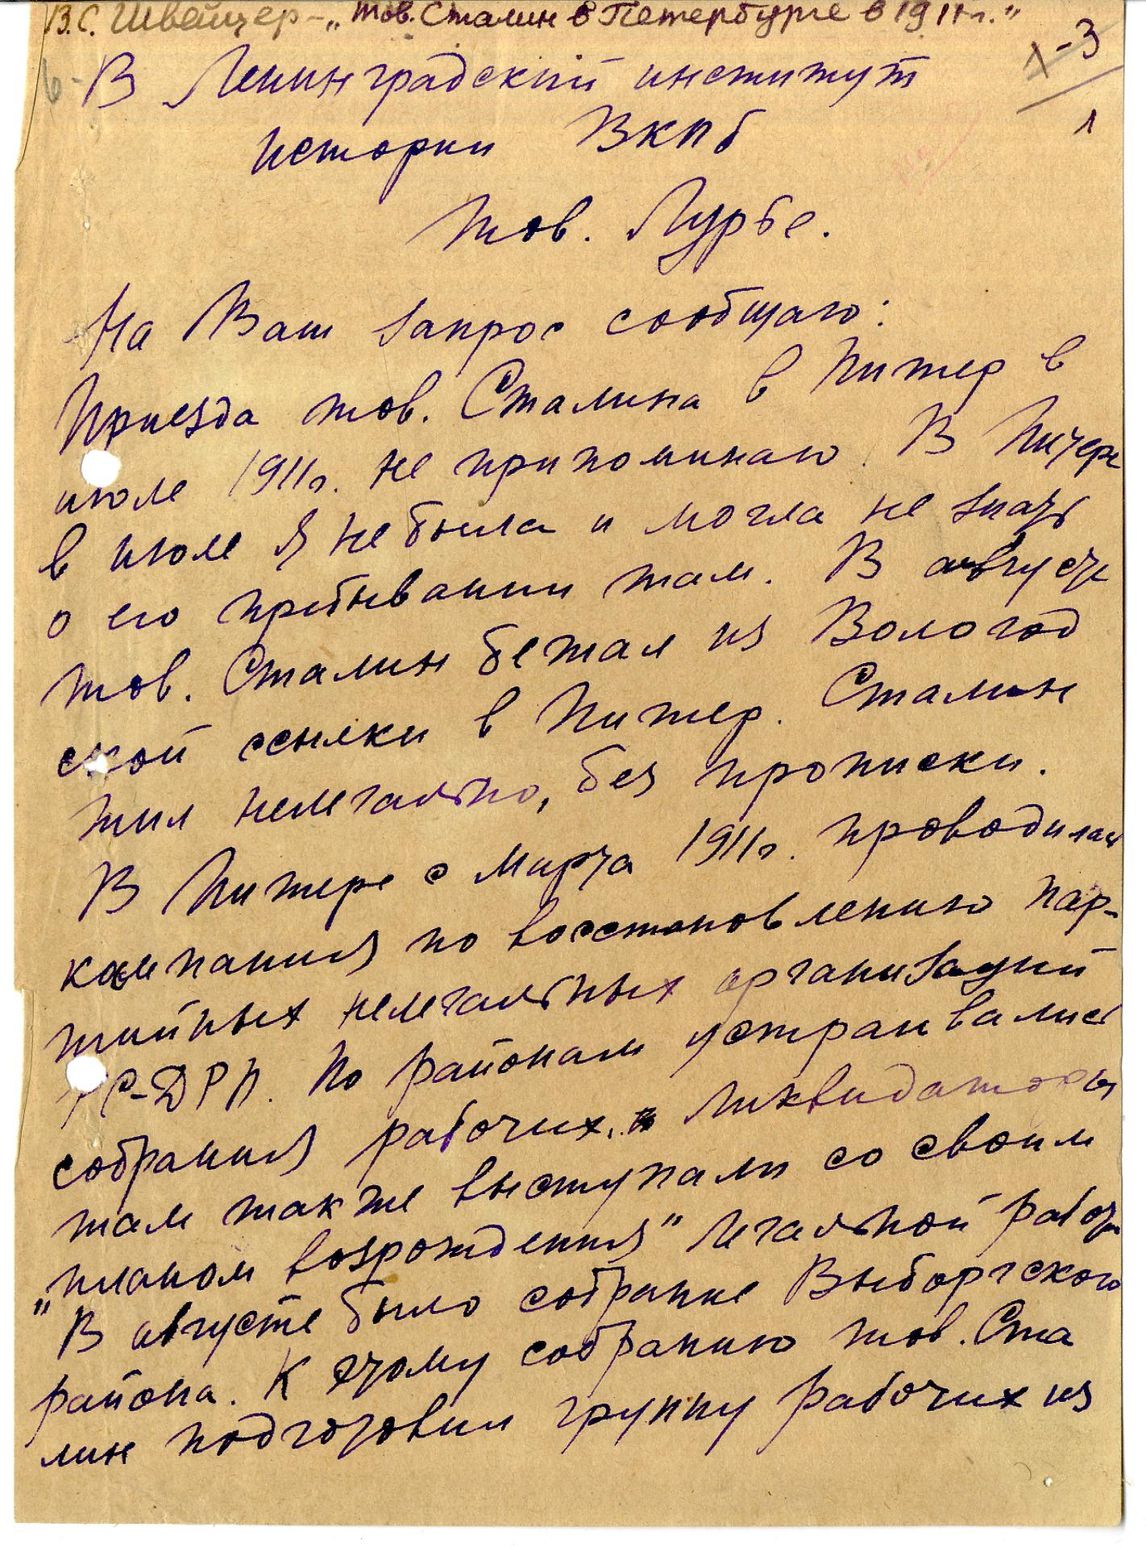 В.С. Швейцер – „тов. Сталин в Петербурге в 1911 г."
1-3
1
6-
В Ленинградский институт
истории ВКПб
тов. Лурье.
На Ваш запрос сообщаю:
Приезда тов. Сталина в Питер в
июле 1911г. не припоминаю. В Питере
в июле я не была и могла не знать
о его пребывании там. В августе
тов. Сталин бежал из Вологод
ской ссылки в Питер. Сталин
жил нелегально, без прописки.
В Питере с марта 1911г. проводилась
кампания по восстановлению пар-
тийных нелегальных организаций
РС-ДРП. По районам устраивались
собрания рабочих, ликвидаторы
там также выступали со своим
„планом возрождения" легальной работы
В августе было собрание Выборгского
района. К этому собранию тов. Ста
лин подготовил группу рабочих из